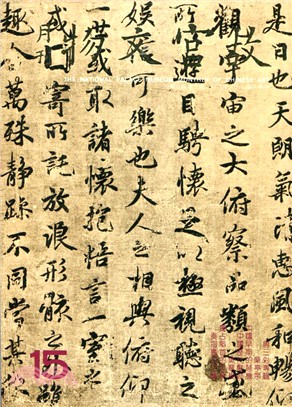 是日也天朗氣清惠風和暢仰
觀宇宙之大俯察品類之盛
所以遊目騁懷足以極視聽之
娛信可樂也夫人之相與俯仰
一世或取諸懷抱悟言一室之
或因寄所託放浪形骸之外雖
趣舍萬殊靜躁不同當其欣
故
月刊
THE NATIONAL PALACE MUSEUM MONTHLY OF CHINESE ART
15